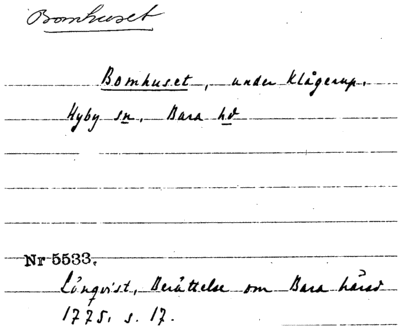 Bomhuset
Bomhuset, under Klågerup,
Hyby sn, Bara hd
Nr 5533.
Lönqvist, Berättelse om Bara härad
1775, s. 17.